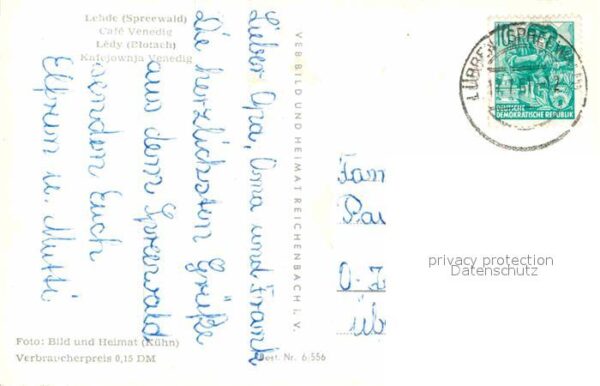 Lehde (Spreewald)
Café Venedig
Lědy (Błotach)
Kafejownja Venedig
Lieber Opa, Oma und Frank
Die herzlichsten Grüße
aus dem Spreewald
senden Euch
u. Mutti
VEB BILD UND HEIMAT REICHENBACH i. V.
DEUTSCHE
DEMOKRATISCHE REPUBLIK
LÜBBEN (SPREEW
Fam
O-
üb
privacy protection
Datenschutz
Foto: Bild und Heimat (Kühn)
Verbraucherpreis 0,15 DM
Best. Nr. 6/556